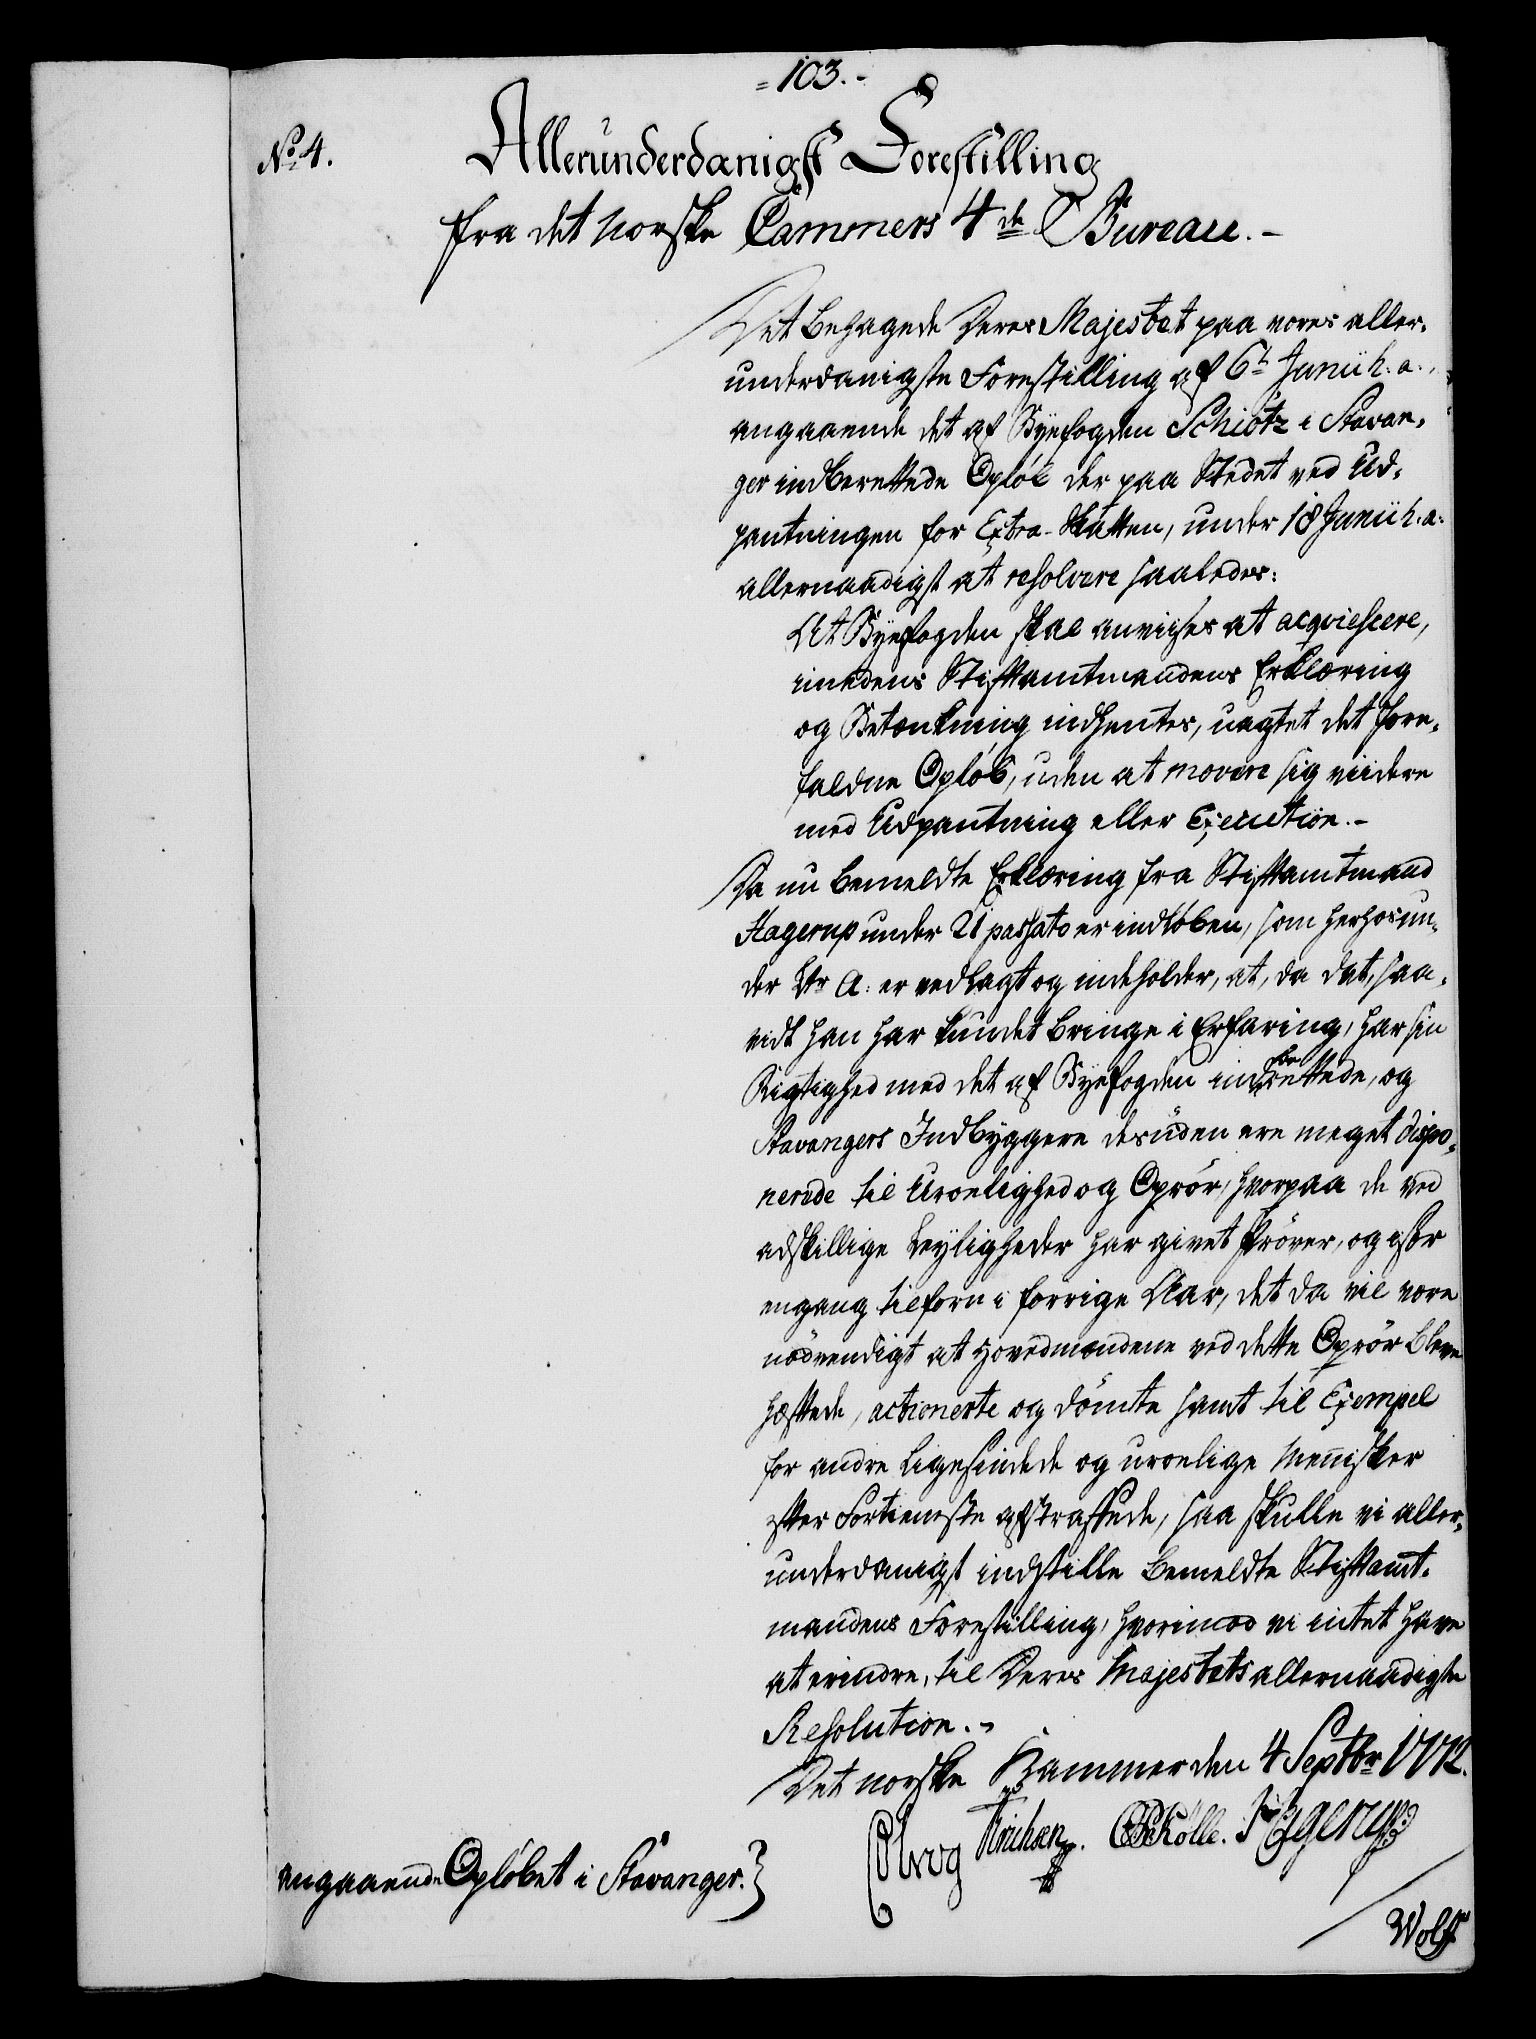 = 103. -
No. 4.
Allerunderdanigst Forestilling
fra det norske Cammers 4de Bureau. -
Det behagede Deres Majestæt paa vores aller-
underdanigste Forestilling af 6t Junii h. a.,
angaaende det af Byefogden Schiötz i Stavan-
ger indberettede Opløb der paa Stedet ved Ud-
pantningen for Extra-Skatten, under 18 Junii h. a.
allernaadigst at resolvere saaledes:
At Byefogden skal anvises at acqviescere,
imedens Stiftamtmandens Erklæring
og Betænkning indhentes, uagtet det fore-
faldne Opløb, uden at movere sig viidere
med Udpantning eller Execution. -
Da nu bemeldte Erklæring fra Stiftamtmand
Hagerup under 21 passato er indløben, som herhos un-
der Ltr A: er vedlagt og indeholder, at, da det, saa-
vidt han har kundet bringe i Erfaring, har sin
Rigtighed med det af Byefogden indberettede, og
Stavangers Indbyggere desuden ere meget dispo-
nerede til Uroelighed og Oprør, hvorpaa de ved
adskillige Leyligheder har givet Prøver, og især
engang tilforn i forrige Aar, det da vil være
nødvendigt at Hovedmændene ved dette Oprør bleve
hæftede, actionerte og dömte samt til Exempel
for andre ligesindede og uroelige Mennisker
efter Fortieneste afstraffede, saa skulle vi aller-
underdanigst indstille bemeldte Stiftamt-
mandens Forestilling, hvorimod vi intet have
at erindre, til Deres Majestæts allernaadigste
Resolution. -
Det norske Kammer den 4 Septbr 1772.
OBKølle.
Wolff
angaaende Opløbet i Stavanger. }